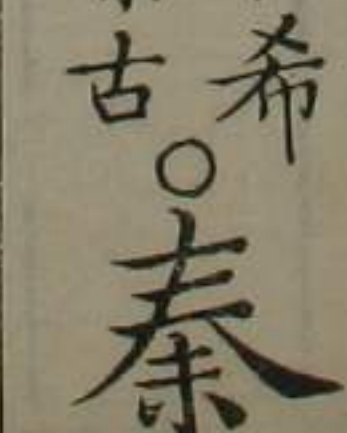 希
古
○
秦